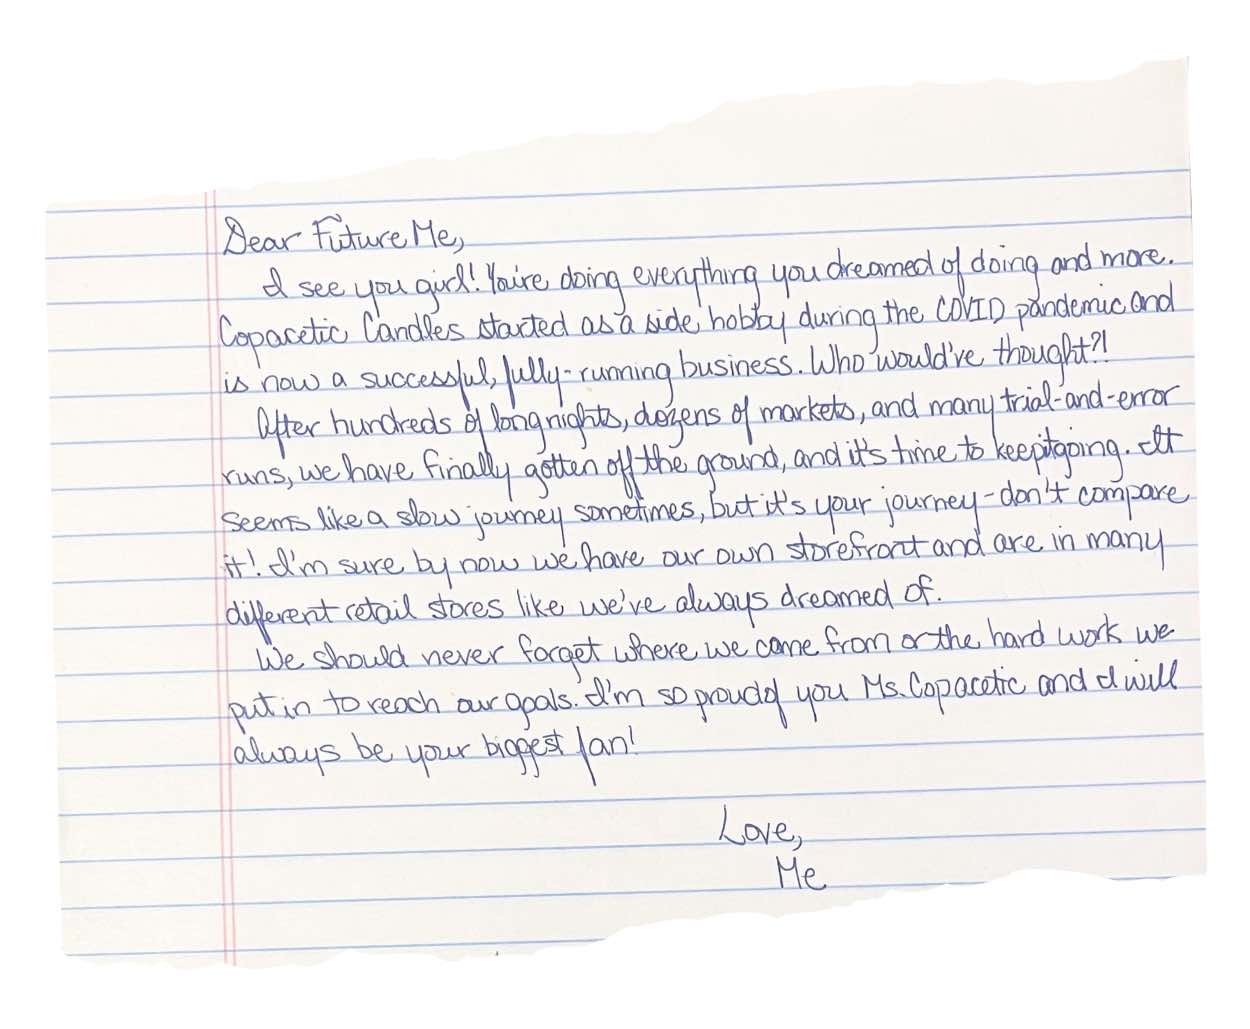 Dear Future Me,
I see you girl! You're doing everything you dreamed of doing and more.
Copacetic Candles started as a side hobby during the COVID pandemic and
is now a successful, fully-running business. Who would've thought?!
After hundreds of long nights, dozens of markets, and many trial-and-error
runs, we have finally gotten off the ground, and it's time to keep it going. It
seems like a slow journey sometimes, but it's your journey - don't compare
it! I'm sure by now we have our own storefront and are in many
different retail stores like we've always dreamed of.
We should never forget where we came from or the hard work we
put in to reach our goals. I'm so proud of you Ms. Copacetic and I will
always be your biggest fan!
Love,
Me